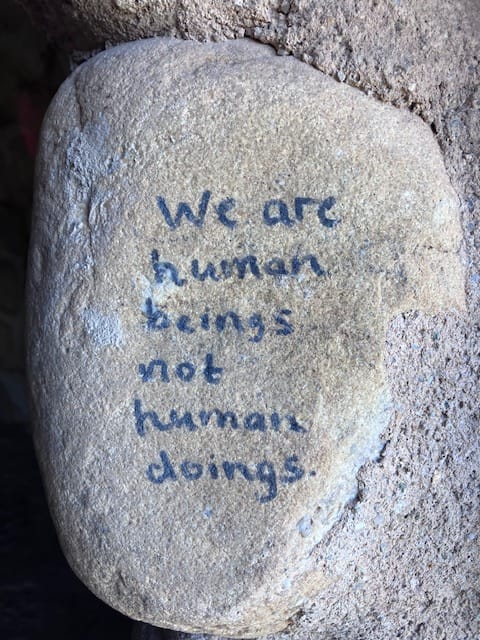 We are
human
beings
not
human
doings.